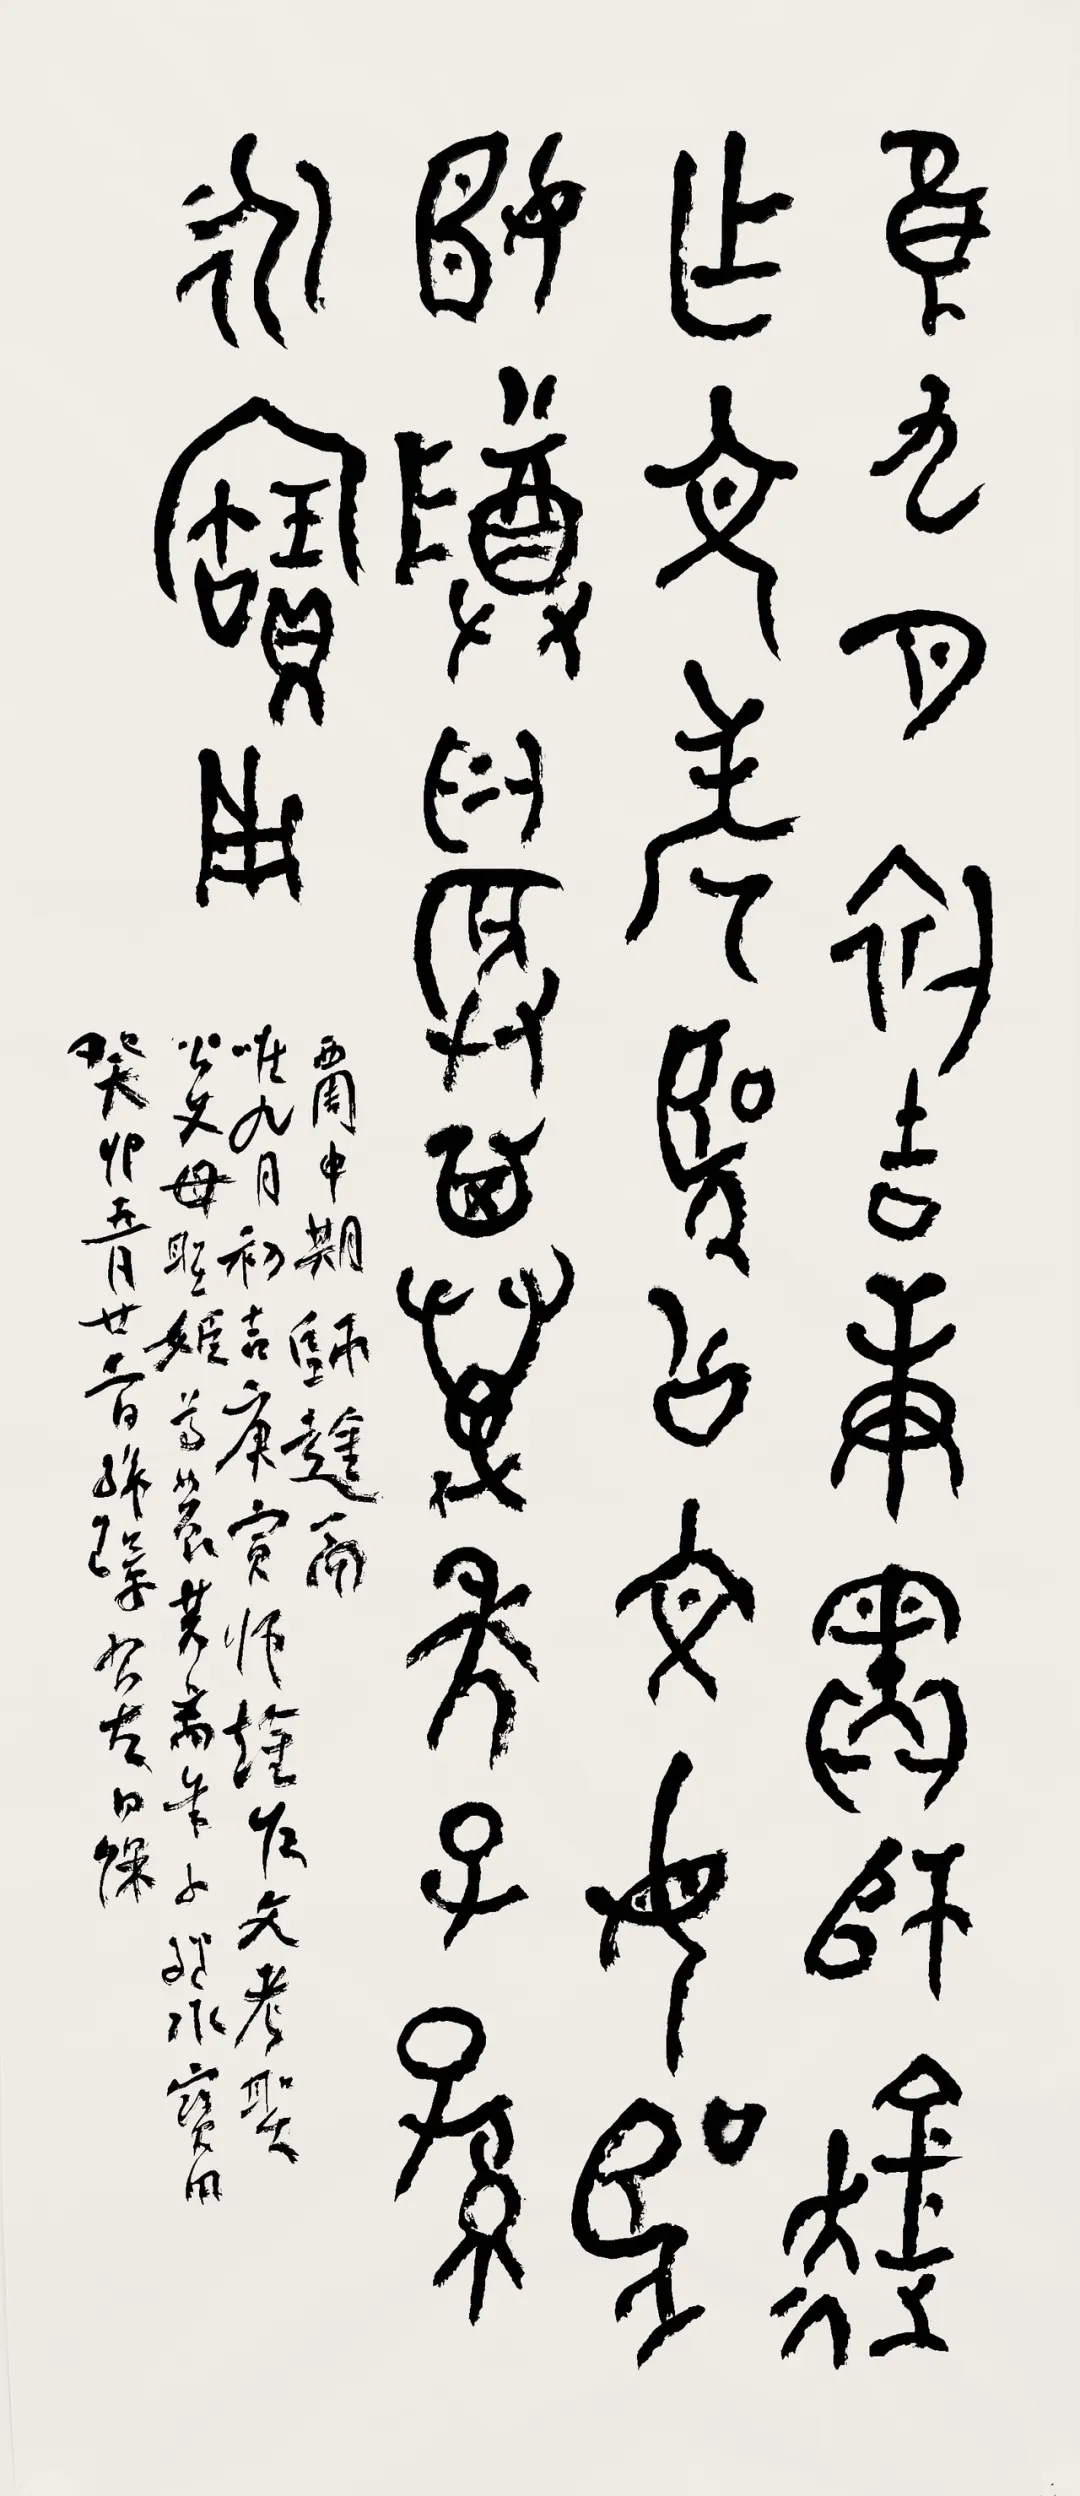 隹九月初吉庚寅師趛
乍文考聖公文母聖
姬尊其萬年子孫
永寶用
西周中期師趛鬲
唯九月初吉庚寅師趛作文考聖
公文母聖姬尊其萬年子孫永寶用
癸卯五月廿六日古日課